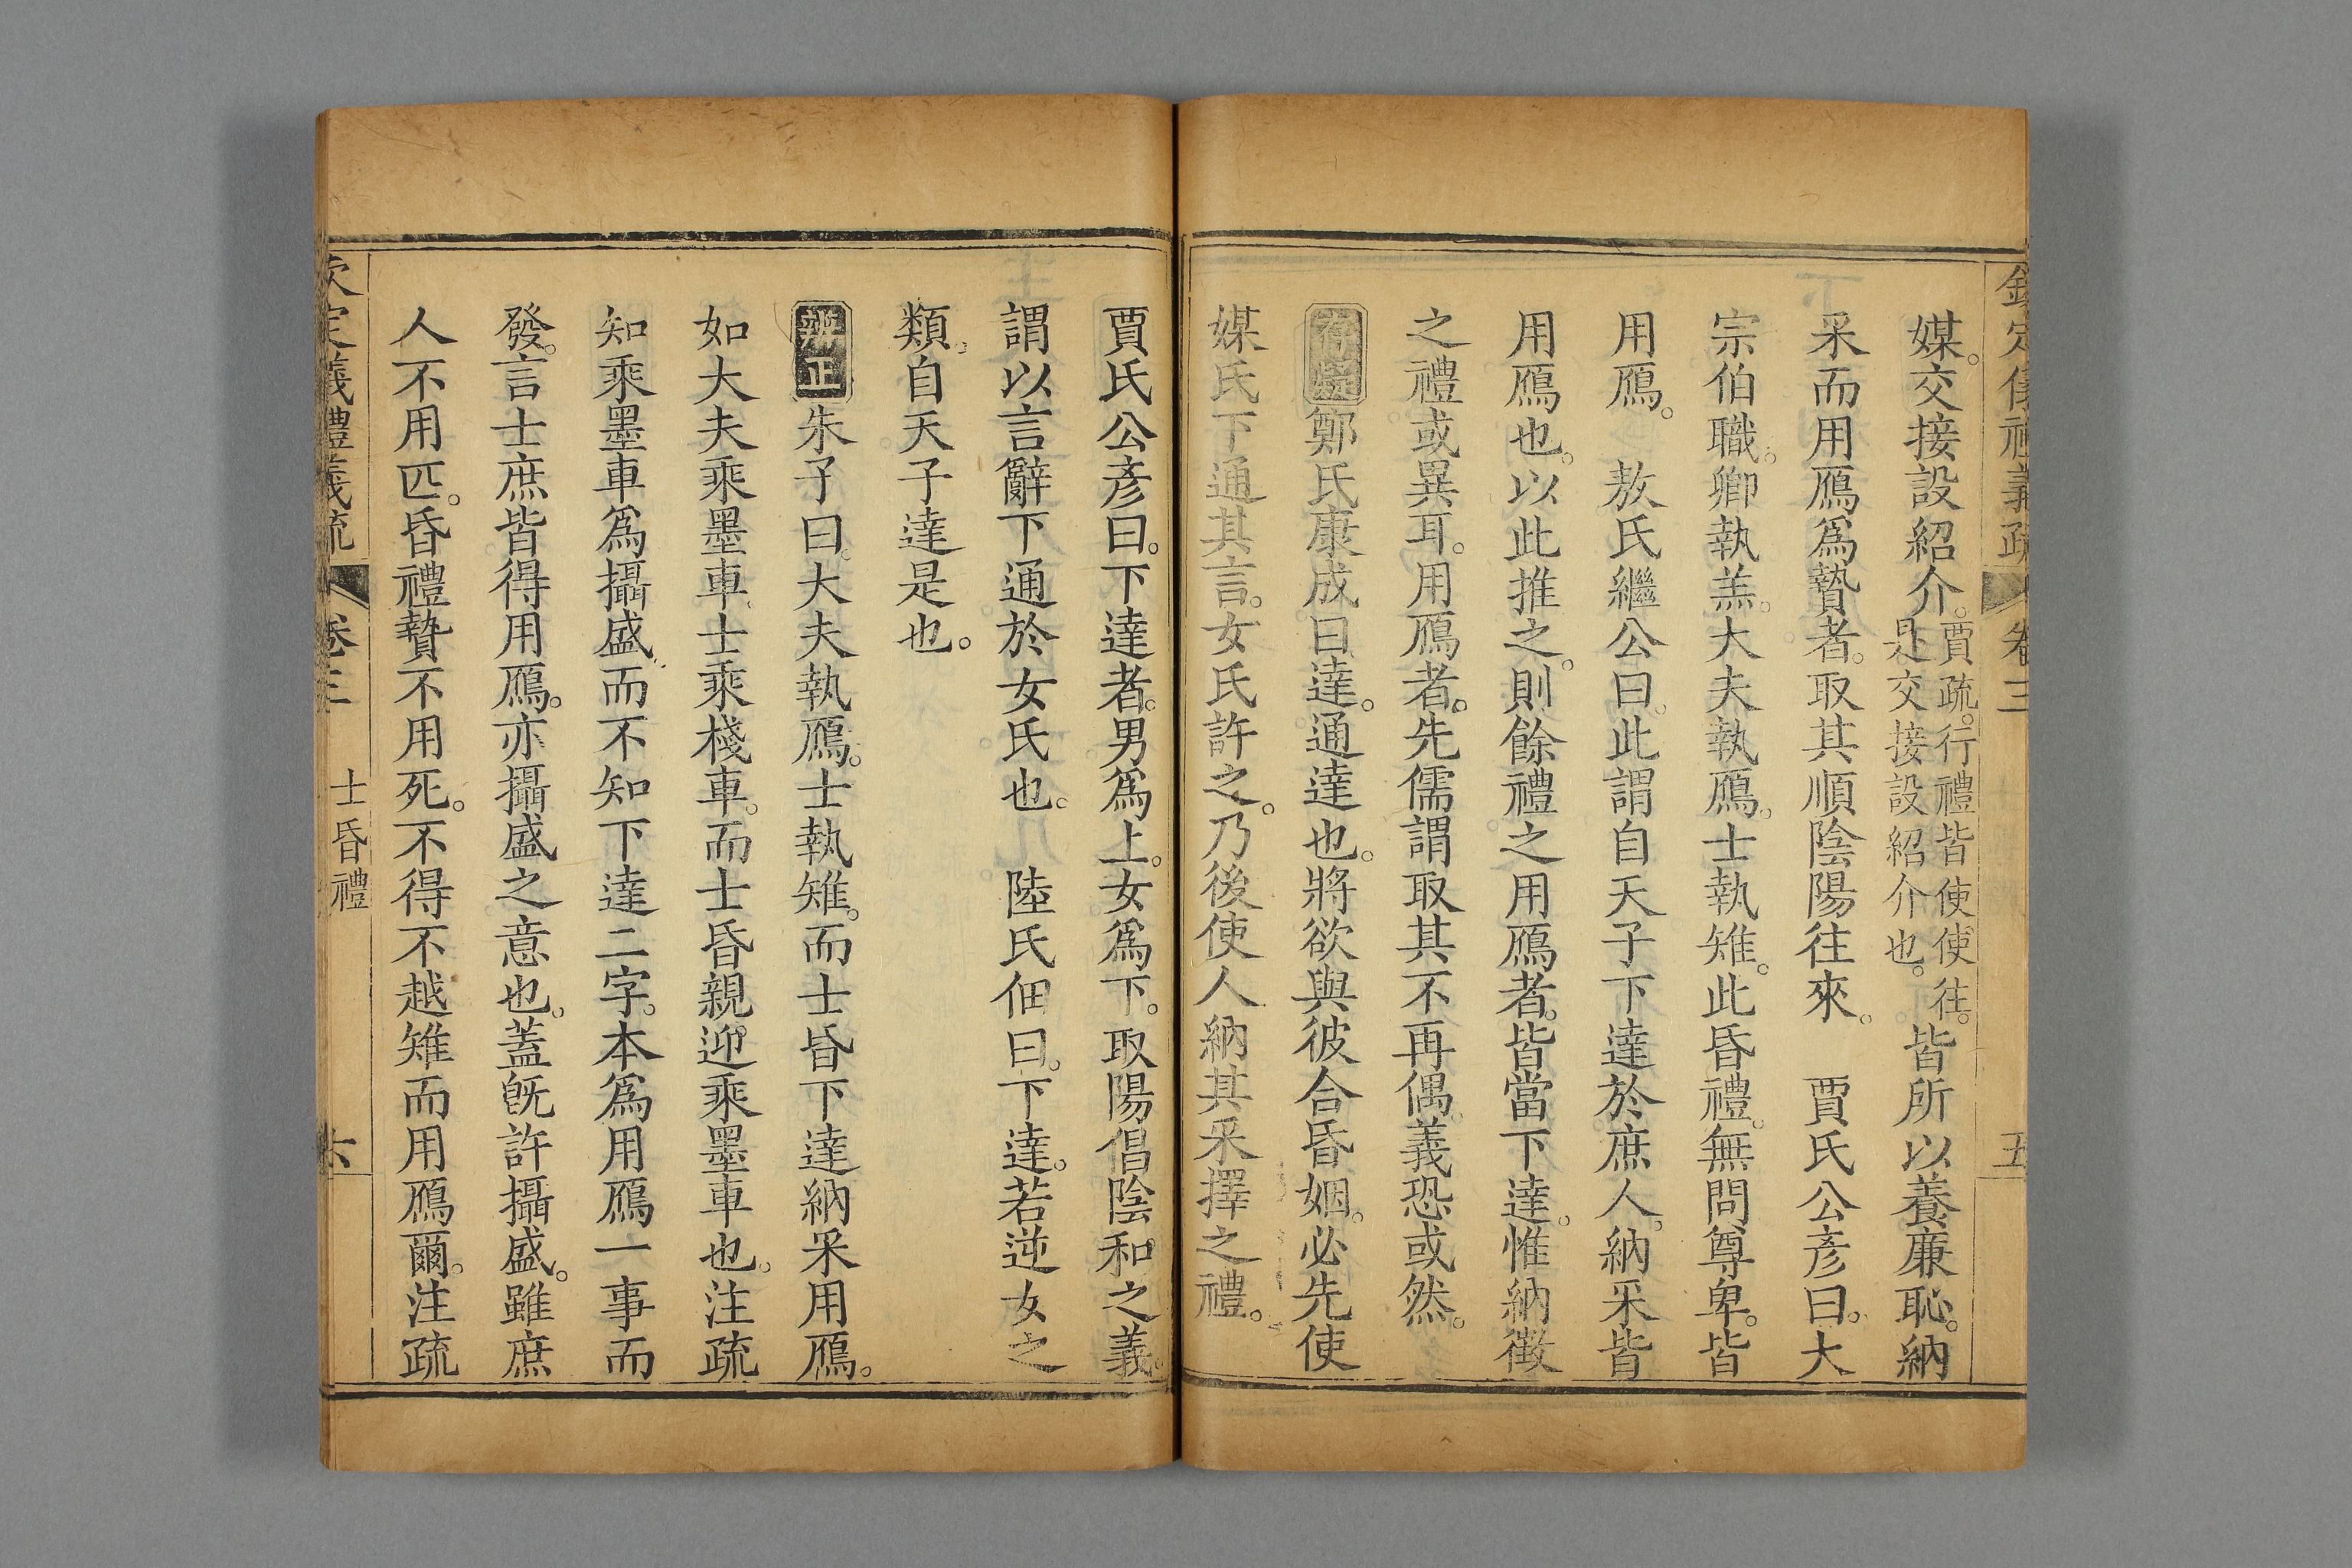 欽定儀禮義疏 卷三 五
媒。交接設紹介。賈疏。行禮皆使使往。是交接設紹介也。皆所以養廉恥。納
采而用鴈爲贄者。取其順陰陽往來。 賈氏公彥曰。大
宗伯職。卿執羔。大夫執鴈。士執雉。此昏禮。無問尊卑。皆
用鴈。 敖氏繼公曰。此謂自天子下達於庶人。納采皆
用鴈也。以此推之。則餘禮之用鴈者。皆當下達。惟納徵
之禮或異耳。用鴈者。先儒謂取其不再偶。義恐或然。
存疑鄭氏康成曰。達。通達也。將欲與彼合昏姻。必先使
媒氏下通其言。女氏許之。乃後使人納其采擇之禮。
賈氏公彥曰。下達者。男爲上。女爲下。取陽倡陰和之義。
謂以言辭下通於女氏也。 陸氏佃曰。下達。若逆女之
類。自天子達是也。
辨正朱子曰。大夫執鴈。士執雉。而士昏下達納采用鴈。
如大夫乘墨車。士乘棧車。而士昏親迎乘墨車也。注疏
知乘墨車爲攝盛。而不知下達二字。本爲用鴈一事而
發。言士庶皆得用鴈。亦攝盛之意也。蓋旣許攝盛。雖庶
人不用匹。昏禮贄不用死。不得不越雉而用鴈爾。注疏
欽定儀禮義疏 卷三 士昏禮 六